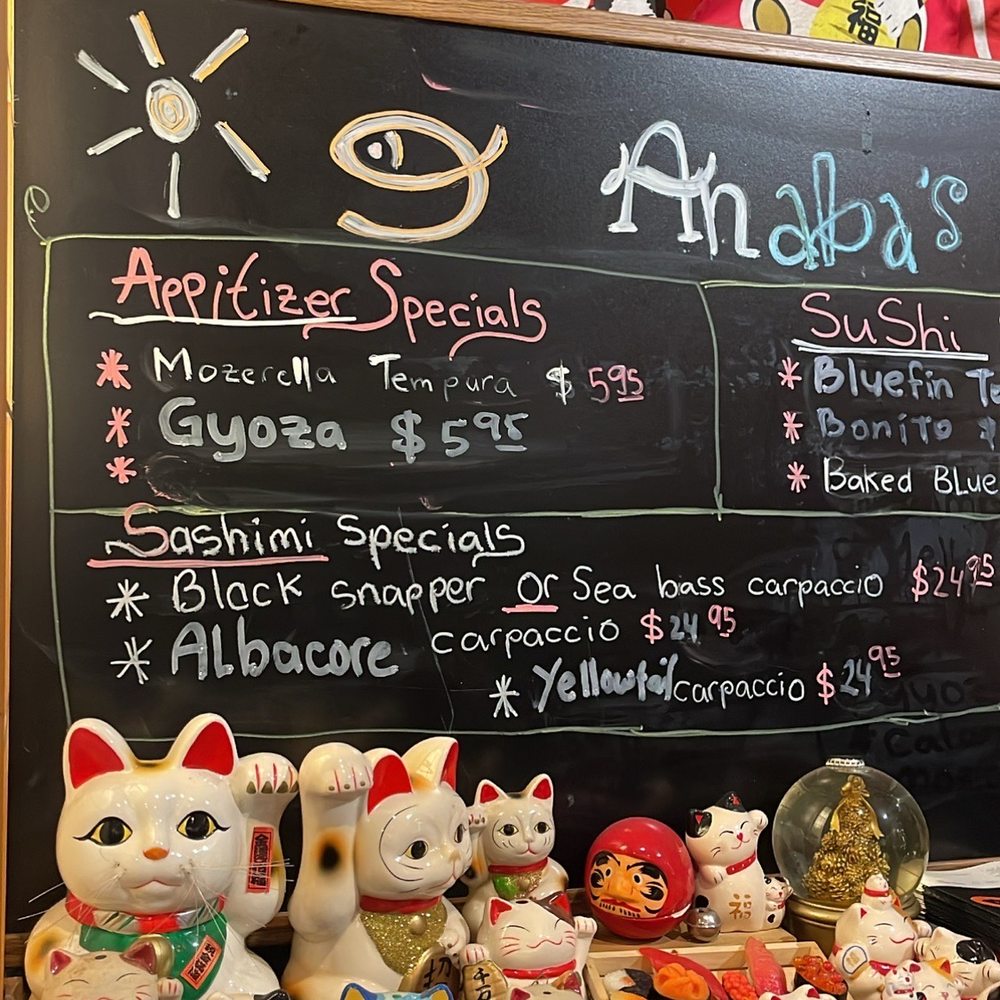 福
Anaba's
Appitizer Specials
* Mozerella Tempura $5.95
* Gyoza $5.95
*
SuShi
* Bluefin
* Bonito
* Baked
Sashimi Specials
* Black snapper Or Sea bass carpaccio $24.95
* Albacore carpaccio $24.95
* Yellowtail carpaccio $24.95
福